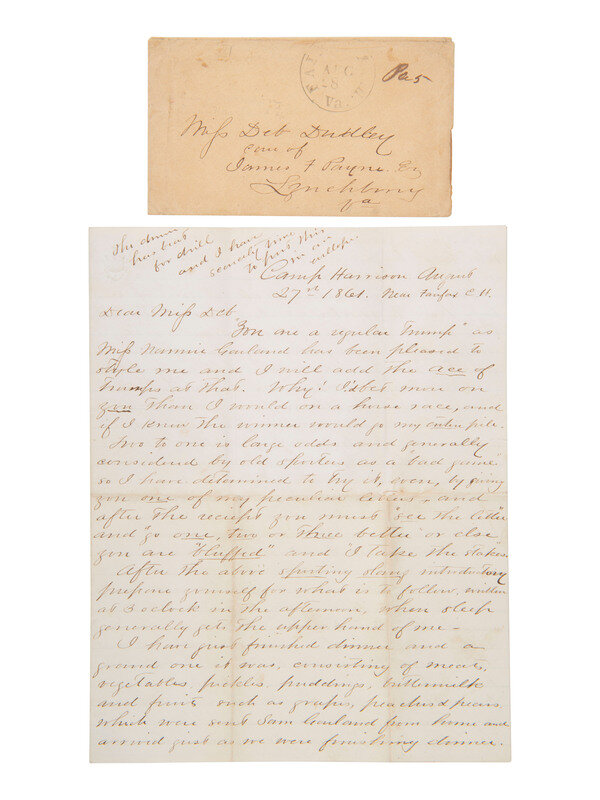 AUG
28
Va.
Pa 5
Miss Deb Dudley
care of
James F Payne Esq
Lynchburg
Va
The drum
has beat
for drill
and I have
scarcely time
to put this
in an
envelope
Camp Harrison August
27th 1861. Near Fairfax C.H.
Dear Miss Deb
You are a regular "Trump" as
Miss Nannie Garland has been pleased to
style me and I will add the ace of
trumps at that. Why! I'd bet more on
you than I would on a horse race, and
if I knew the winner would go my entire pile.
Two to one is large odds and generally
considered by old sporters as a "bad game"
so I have determined to try it, even, by giving
you one of my peculiar letters, and
after the reciept you must "see the letter"
and "go one, two or three better or else
you are "bluffed" and I take the stakes.
After the above sporting slang introductory
prepare yourself for what is to follow, written
at 3 oclock in the afternoon, when sleep
generally gets the upper hand of me—
I have just finished dinner and a
grand one it was, consisting of meats,
vegetables, pickles, puddings, buttermilk
and fruit such as grapes, peaches & pears
which were sent Sam Garland from home and
arrived just as we were finishing dinner.